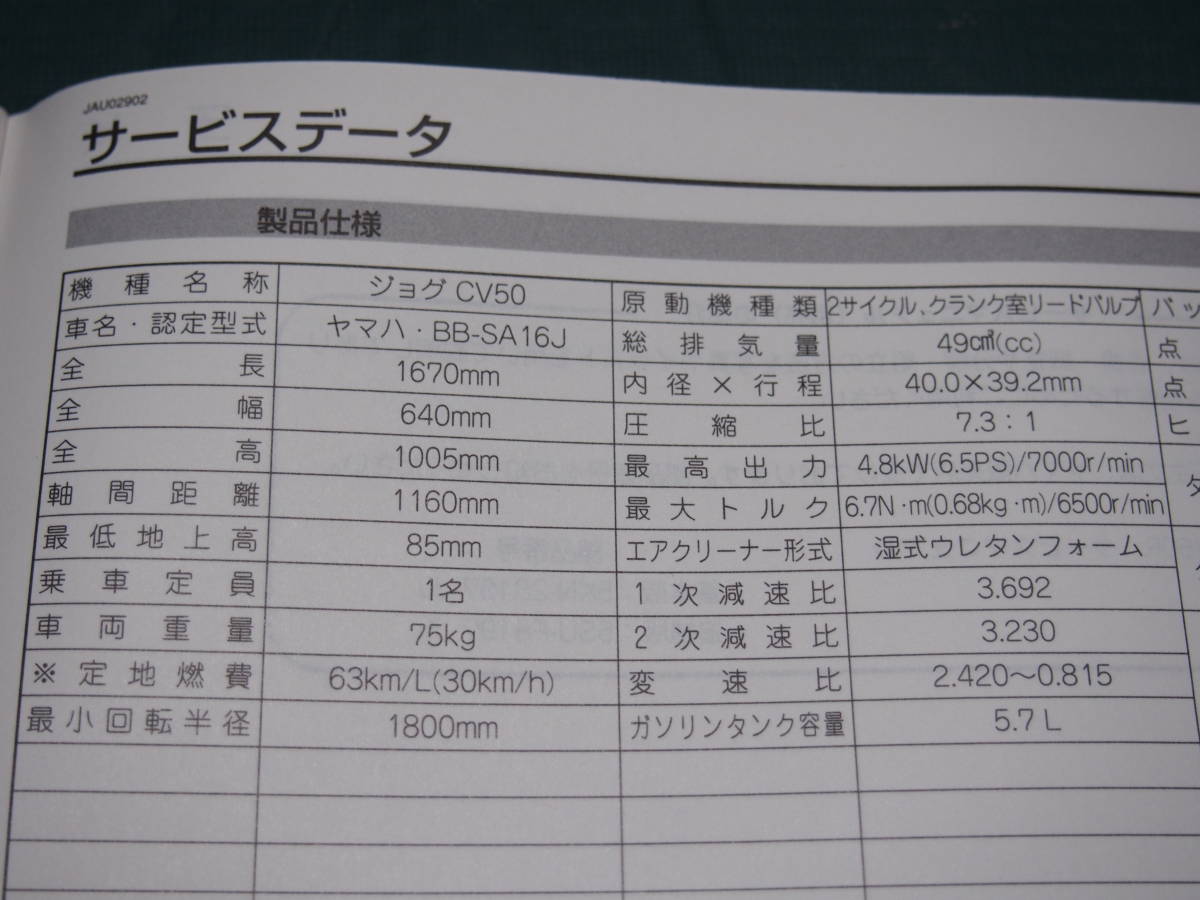 JAU02902
サービスデータ
製品仕様
機種名称 ジョグ CV50 原動機種類 2サイクル、クランク室リードバルブ バッ
車名・認定型式 ヤマハ・BB-SA16J 総排気量 49c㎥(cc) 点
全長 1670mm 内径×行程 40.0×39.2mm 点
全幅 640mm 圧縮比 7.3:1 ヒ
全高 1005mm 最高出力 4.8kW(6.5PS)/7000r/min
軸間距離 1160mm 最大トルク 6.7N・m(0.68kg・m)/6500r/min
最低地上高 85mm エアクリーナー形式 湿式ウレタンフォーム
乗車定員 1名 1次減速比 3.692
車両重量 75kg 2次減速比 3.230
※定地燃費 63km/L(30km/h) 変速比 2.420〜0.815
最小回転半径 1800mm ガソリンタンク容量 5.7L